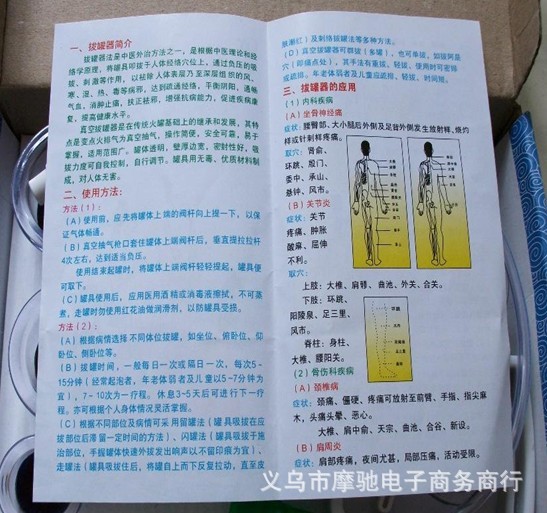 一、拔罐器简介
拔罐器法是中医外治方法之一，是根据中医理论和经
络学原理，将器具叩拔于人体经络穴位上，通过负压的吸
拔、刺激等作用，以祛除人体表层乃至深层组织的风、
寒、湿、热、毒等病邪，达到疏通经络，平衡阴阳，通畅
气血，消肿止痛，扶正祛邪，增强抗病能力，促进疾病康
复，提高健康水平。
真空拔罐器是在传统火罐基础上的继承和发展，其特
点是变点火排气为真空抽气，操作简便，安全可靠，易于
掌握，适用范围广。罐体透明，壁厚边宽，密封性好，吸
拔力度可自我控制，自行调节。罐具用无毒、优质材料制
成，对人体无害。
二、使用方法：
方法（1）：
（A）使用前，应先将罐体上端的阀杆向上提一下，以保
证气体畅通。
（B）真空抽气枪口套住罐体上端阀杆后，垂直提拉拉杆
4次左右，达到适当负压。
使用结束起罐时，将罐体上端阀杆轻轻提起，罐具便
可取下。
（C）罐具使用后，应用医用酒精或消毒液擦拭，不可蒸
煮，走罐时勿使用红花油做润滑剂，以防罐具受损。
方法（2）：
（A）根据病情选择不同体位拔罐，如坐位、俯卧位、仰
卧位、侧卧位等。
（B）拔罐时间，一般每日一次或隔日一次，每次5-
15分钟（经常起泡者，年老体弱者及儿童以5~7分钟为
宜），7-10次为一疗程。休息3-5天后可进行下一疗
程。亦可根据个人身体情况灵活掌握。
（C）根据不同部位及病情可采用留罐法（罐具吸拔在应
拔部位后滞留一定时间的方法）、闪罐法（罐具吸拔于施
治部位，手握罐体快速外拔发出响声以不留印痕为宜）、
走罐法（罐具吸拔住后，将罐自上而下反复拉动，直至皮
肤潮红）及刺络拔罐法等多种方法。
（D）真空拔罐器可群拔（多罐），也可单拔，如拔阿是
穴（即痛点处），其手法有重拔、轻拔，使用时可密排
或疏排。年老体弱者及儿童应疏排、轻拔、时间短。
三、拔罐器的应用
（1）内科疾病
（A）坐骨神经痛
症状：腰臀部、大小腿后外侧及足背外侧发生放射样、烧灼
样或针刺样疼痛。
取穴：肾俞、
环跳、殷门、
委中、承山、
悬钟、风市。
（B）关节炎
症状：关节
疼痛、肿胀
酸麻、屈伸
不利。
取穴：
上肢：大椎、肩髃、曲池、外关、合关。
下肢：环跳、
阳陵泉、足三里、
风市。
脊柱：身柱、
大椎、腰阳关。
（2）骨伤科疾病
（A）颈椎病
症状：颈痛、僵硬、疼痛可放射至前臂、手指、指尖麻
木，头痛头晕、恶心。
大椎、肩中俞、天宗、曲池、合谷、新设。
（B）肩周炎
症状：肩部疼痛，夜间尤甚，局部压痛，活动受限。
义乌市摩驰电子商务商行